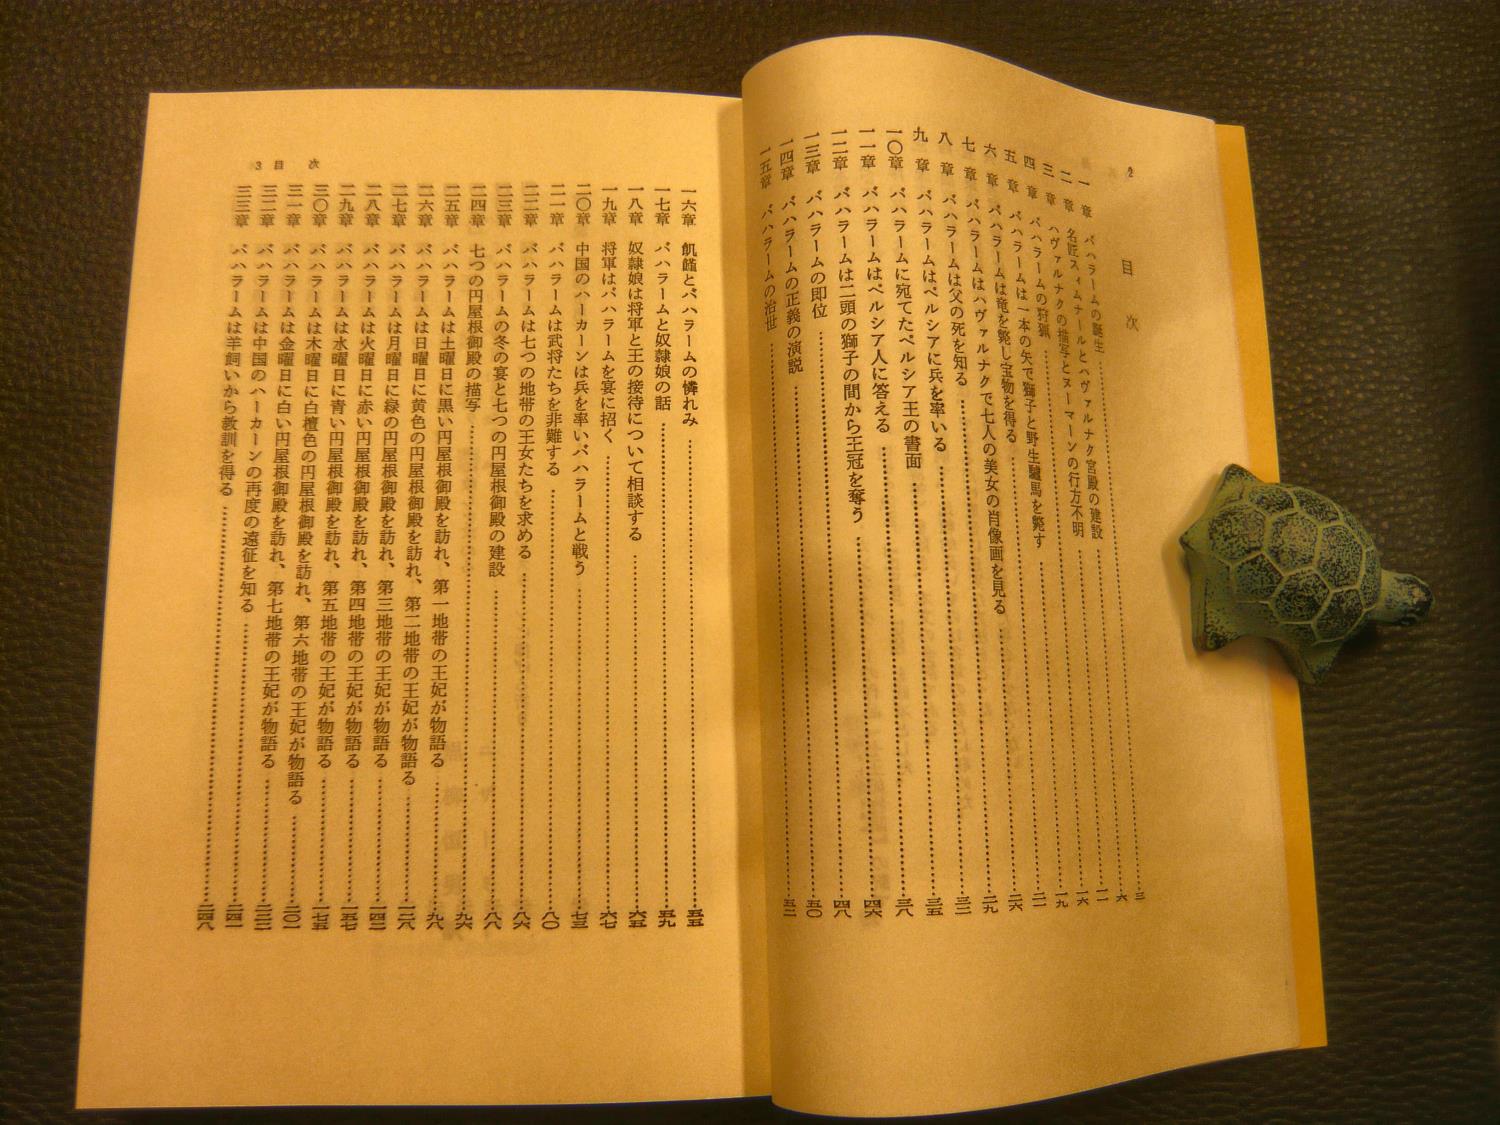 2
目次
一章 バハラームの誕生……三
二章 名匠スィムナールとハヴァルナク宮殿の建設……六
三章 ハヴァルナクの描写とヌーマーンの行方不明……一一
四章 バハラームの狩猟……一六
五章 バハラームは一本の矢で獅子と野生驢馬を斃す……一九
六章 バハラームは竜を斃し宝物を得る……二一
七章 バハラームはハヴァルナクで七人の美女の肖像画を見る……二六
八章 バハラームは父の死を知る……二九
九章 バハラームはペルシアに兵を率いる……三二
一〇章 バハラームに宛てたペルシア王の書面……三五
一一章 バハラームはペルシア人に答える……三八
一二章 バハラームは二頭の獅子の間から王冠を奪う……四六
一三章 バハラームの即位……四八
一四章 バハラームの正義の演説……五〇
一五章 バハラームの治世……五二
一六章 飢饉とバハラームの憐れみ……五五
一七章 バハラームと奴隷娘の話……五九
一八章 奴隷娘は将軍と王の接待について相談する……六五
一九章 将軍はバハラームを宴に招く……六七
二〇章 中国のハーカーンは兵を率いバハラームと戦う……七三
二一章 バハラームは武将たちを非難する……八〇
二二章 バハラームは七つの地帯の王女たちを求める……八六
二三章 バハラームの冬の宴と七つの円屋根御殿の建設……八八
二四章 七つの円屋根御殿の描写……九六
二五章 バハラームは土曜日に黒い円屋根御殿を訪れ、第一地帯の王妃が物語る……九九
二六章 バハラームは日曜日に黄色の円屋根御殿を訪れ、第二地帯の王妃が物語る……一二八
二七章 バハラームは月曜日に緑の円屋根御殿を訪れ、第三地帯の王妃が物語る……一四三
二八章 バハラームは火曜日に赤い円屋根御殿を訪れ、第四地帯の王妃が物語る……一五七
二九章 バハラームは水曜日に青い円屋根御殿を訪れ、第五地帯の王妃が物語る……一七五
三〇章 バハラームは木曜日に白檀色の円屋根御殿を訪れ、第六地帯の王妃が物語る……二〇一
三一章 バハラームは金曜日に白い円屋根御殿を訪れ、第七地帯の王妃が物語る……
三二章 バハラームは中国のハーカーンの再度の遠征を知る……二四一
三三章 バハラームは羊飼いから教訓を得る……二四八
3 目次